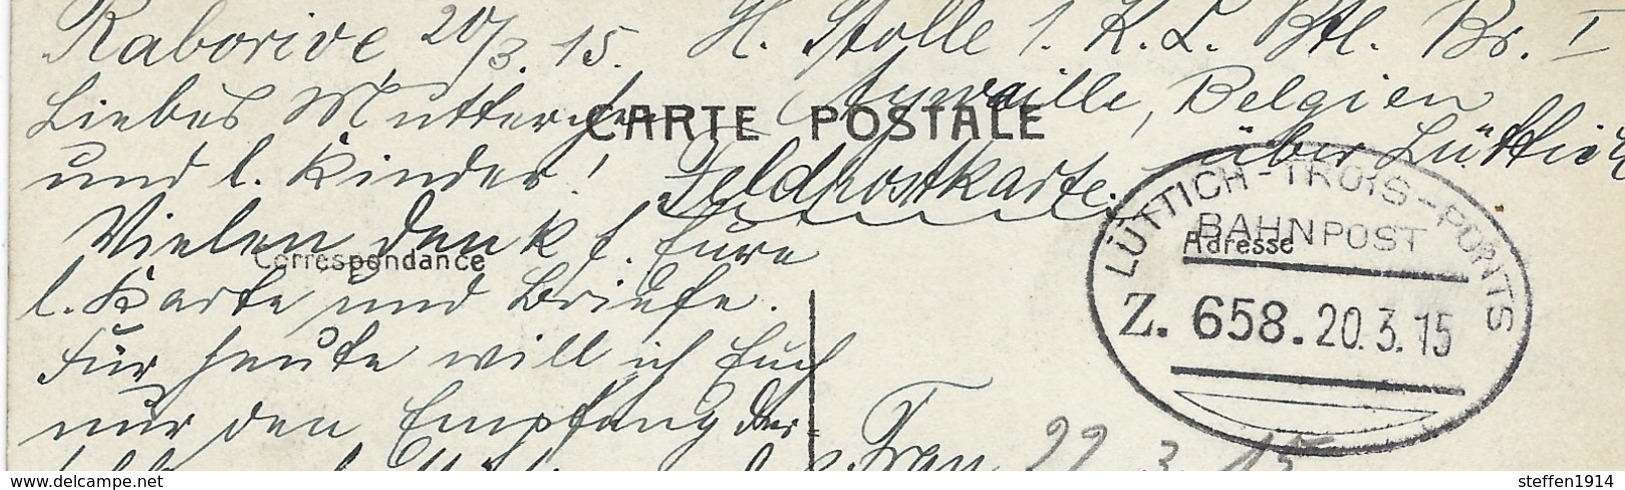 Raborive 20/3. 15. H. Stolle 1. K. L. Btl. Br. I
Aywaille, Belgien
über Lüttich
Feldpostkarte.
Liebes Mutterchen
und l. Kinder!
Vielen Dank f. Eure
l. Karte und Briefe.
Für heute will ich Euch
nur den Empfang der
CARTE POSTALE
Correspondance
Adresse
LÜTTICH-TROIS-PONTS
BAHNPOST
Z. 658. 20.3.15
Frau
22.3.15
delcampe.net
steffen1914